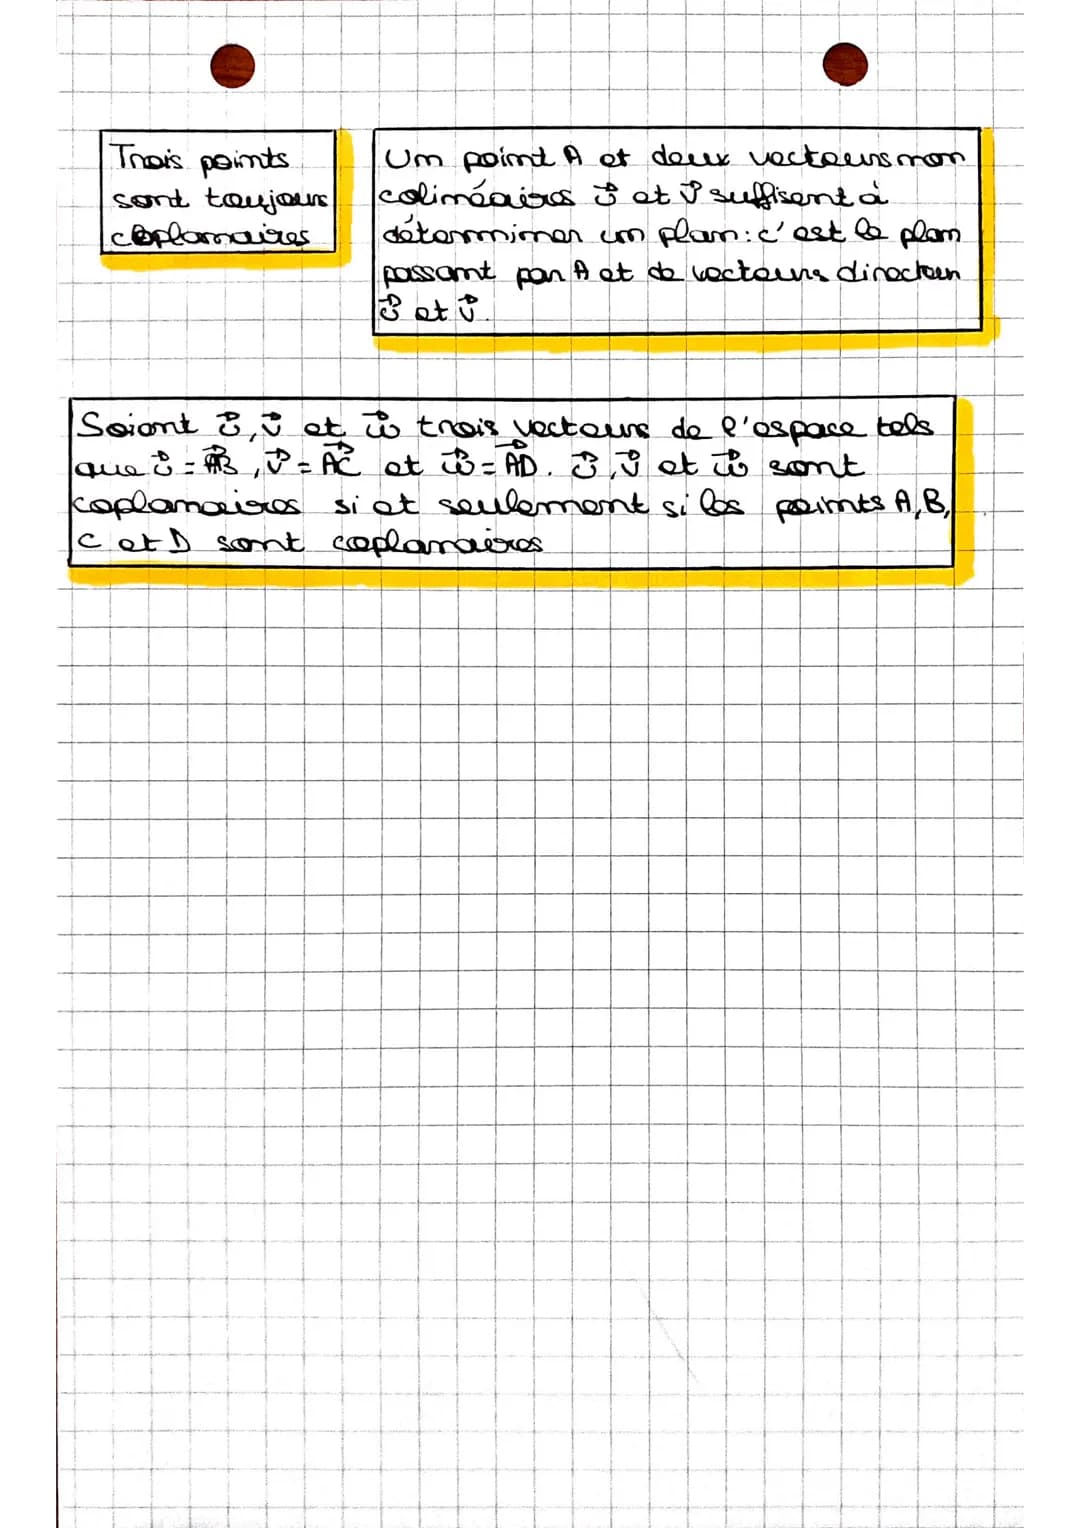 Trois points
sont toujours
coplanaires
Un point A et deux vecteurs non
colinéaires u⃗ et v⃗ suffisent à
déterminer un plan : c'est le plan
passant par A et de vecteurs directeur
u⃗ et v⃗.
Soient u⃗, v⃗ et w⃗ trois vecteurs de l'espace tels
que u⃗ = AB⃗, v⃗ = AC⃗ et w⃗ = AD⃗. u⃗, v⃗ et w⃗ sont
coplanaires si et seulement si les points A, B,
C et D sont coplanaires